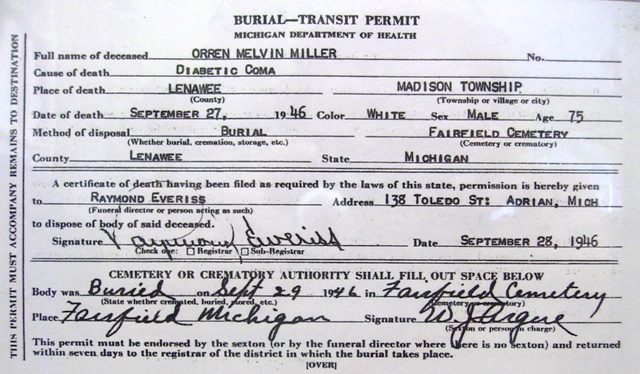 BURIAL—TRANSIT PERMIT
MICHIGAN DEPARTMENT OF HEALTH
Full name of deceased ORREN MELVIN MILLER No.
Cause of death DIABETIC COMA
Place of death LENAWEE MADISON TOWNSHIP
(County) (Township or village or city)
Date of death SEPTEMBER 27, 1946 Color WHITE Sex MALE Age 75
Method of disposal BURIAL FAIRFIELD CEMETERY
(Whether burial, cremation, storage, etc.) (Cemetery or crematory)
County LENAWEE State MICHIGAN
A certificate of death having been filed as required by the laws of this state, permission is hereby given
to RAYMOND EVERISS Address 138 TOLEDO ST: ADRIAN, MICH
(Funeral director or person acting as such)
to dispose of body of said deceased.
Signature Raymond Everiss Date SEPTEMBER 28, 1946
Check one: Registrar Sub-Registrar
CEMETERY OR CREMATORY AUTHORITY SHALL FILL OUT SPACE BELOW
Body was Buried on Sept 29 1946 in Fairfield Cemetery
(State whether cremated, buried, stored, etc.) (Cemetery or crematory)
Place Fairfield Michigan Signature W. J.
(Sexton or person in charge)
This permit must be endorsed by the sexton (or by the funeral director where there is no sexton) and returned
within seven days to the registrar of the district in which the burial takes place.
[OVER]
THIS PERMIT MUST ACCOMPANY REMAINS TO DESTINATION